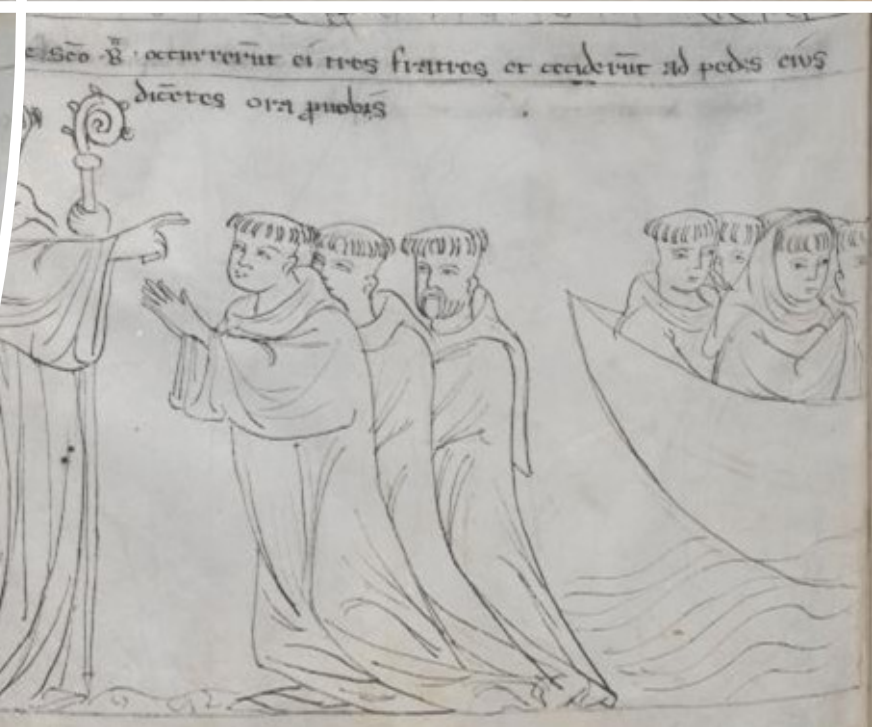 e sc̄o .B̄. occurrerūt ei tres fratres et ceciderūt ad pedes eius
dicētes ora ꝓnobis